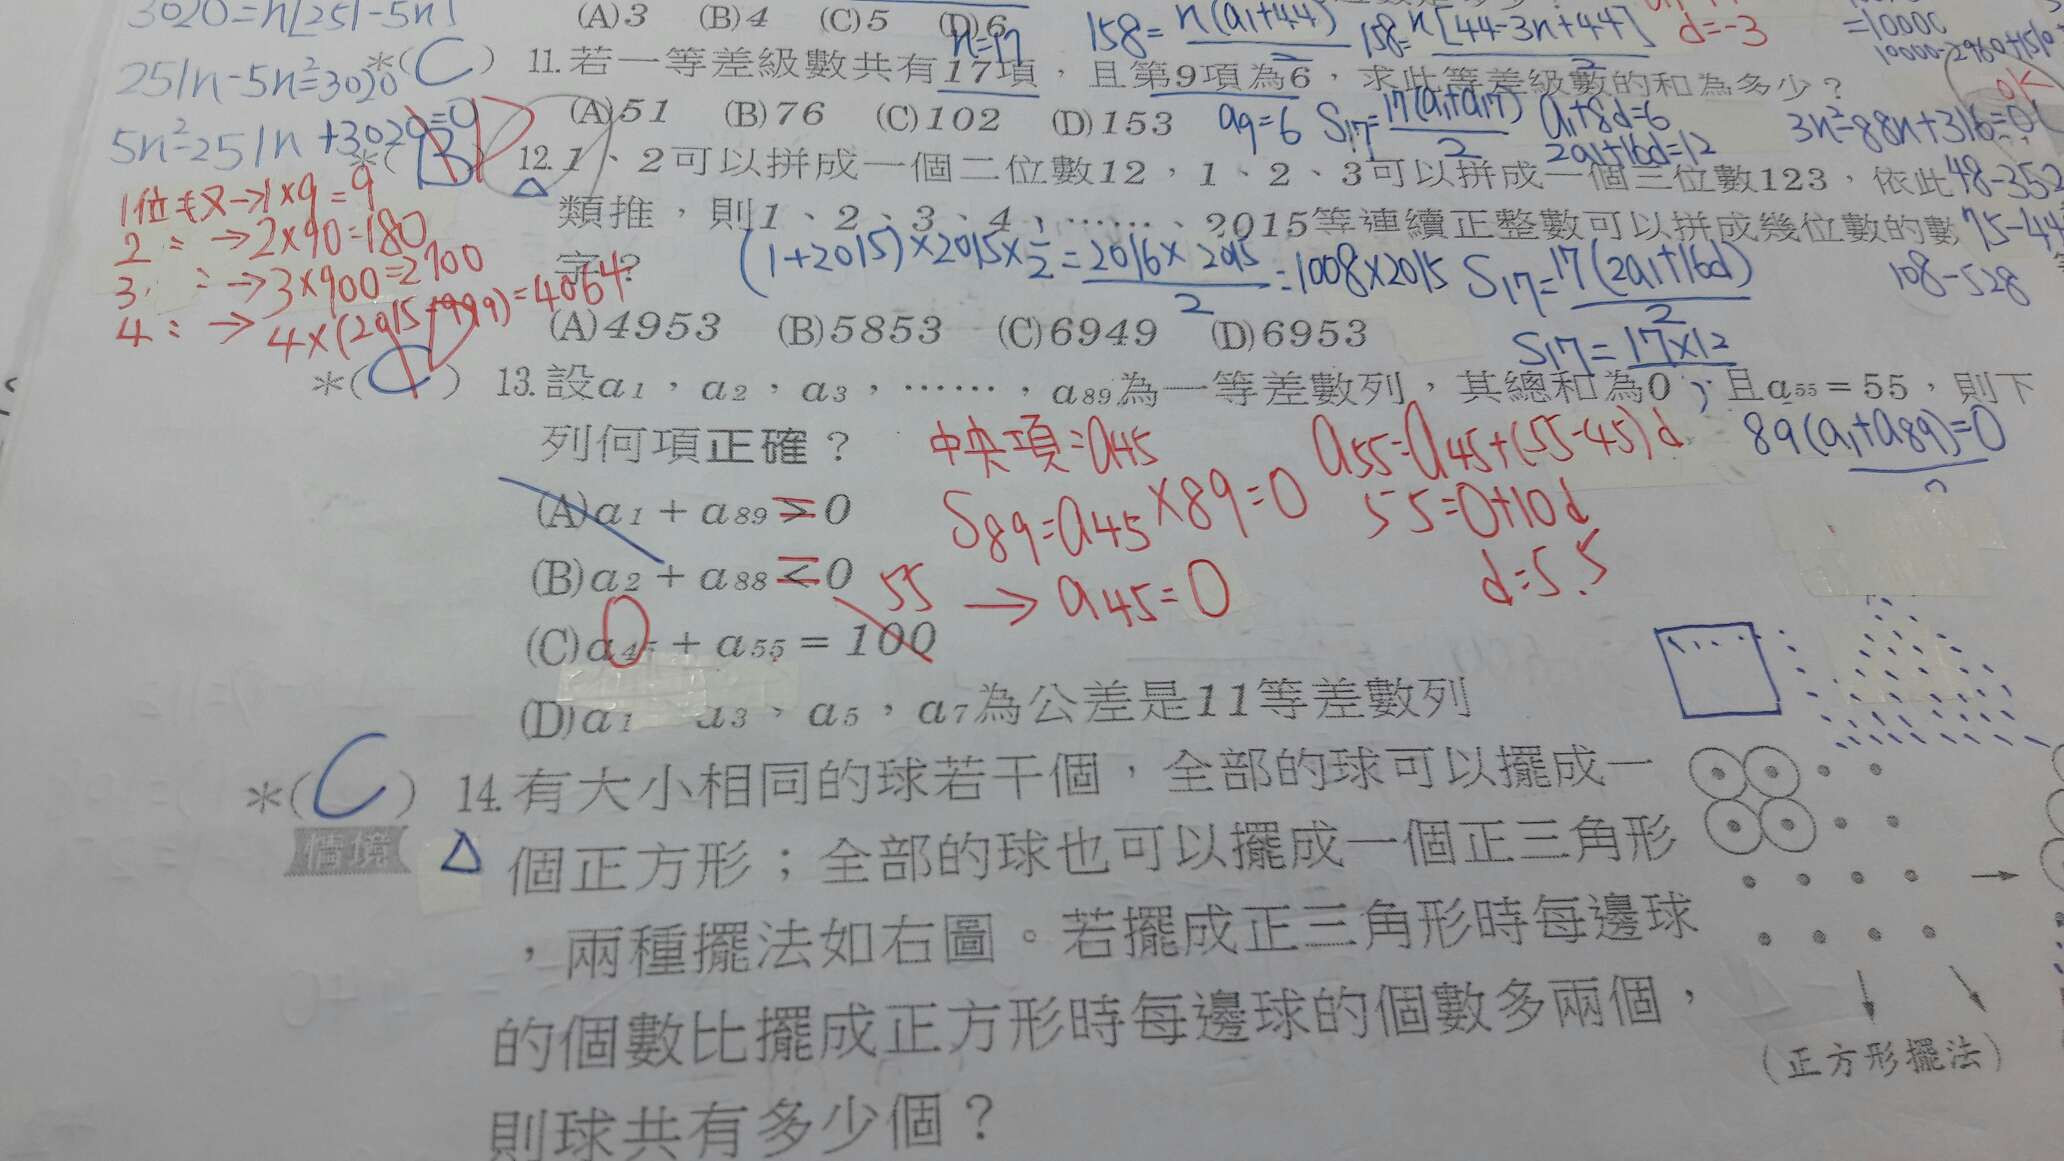 3020=n[251-5n]
251n-5n²=3020
5n²-251n+3020=0
(A)3 (B)4 (C)5 (D)6
n=17
158=n(a₁+44)/2
158=n[44-3n+44]/2
d=-3
=10000
*(C) 11.若一等差級數共有17項，且第9項為6，求此等差級數的和為多少？
(A)51 (B)76 (C)102 (D)153
a₉=6 S₁₇=17(a₁+a₁₇)/2
a₁+8d=6
2a₁+16d=12
3n²-88n+316=0
*(B) 12.1、2可以拼成一個二位數12，1、2、3可以拼成一個三位數123，依此
類推，則1、2、3、4、……、2015等連續正整數可以拼成幾位數的數
字？
48-352
75-44
108-528
(1+2015)×2015×1/2=2016×2015/2=1008×2015
S₁₇=17(2a₁+16d)/2
S₁₇=17×12
1位數→1×9=9
2 〃 →2×90=180
3 〃 →3×900=2700
4 〃 →4×(2015-999)=4064
(A)4953 (B)5853 (C)6949 (D)6953
*(C) 13.設a₁，a₂，a₃，……，a₈₉為一等差數列，其總和為0，且a₅₅=55，則下
列何項正確？
中央項=a₄₅
S₈₉=a₄₅×89=0
→a₄₅=0
a₅₅=a₄₅+(55-45)d
55=0+10d
d=5.5
89(a₁+a₈₉)=0
(A)a₁+a₈₉>0
=
(B)a₂+a₈₈<0
=
(C)a₄₅+a₅₅=100
0
55
(D)a₁、a₃、a₅，a₇為公差是11等差數列
*(C) 14.有大小相同的球若干個，全部的球可以擺成一
情境
個正方形；全部的球也可以擺成一個正三角形
，兩種擺法如右圖。若擺成正三角形時每邊球
的個數比擺成正方形時每邊球的個數多兩個，
則球共有多少個？
(正方形擺法)